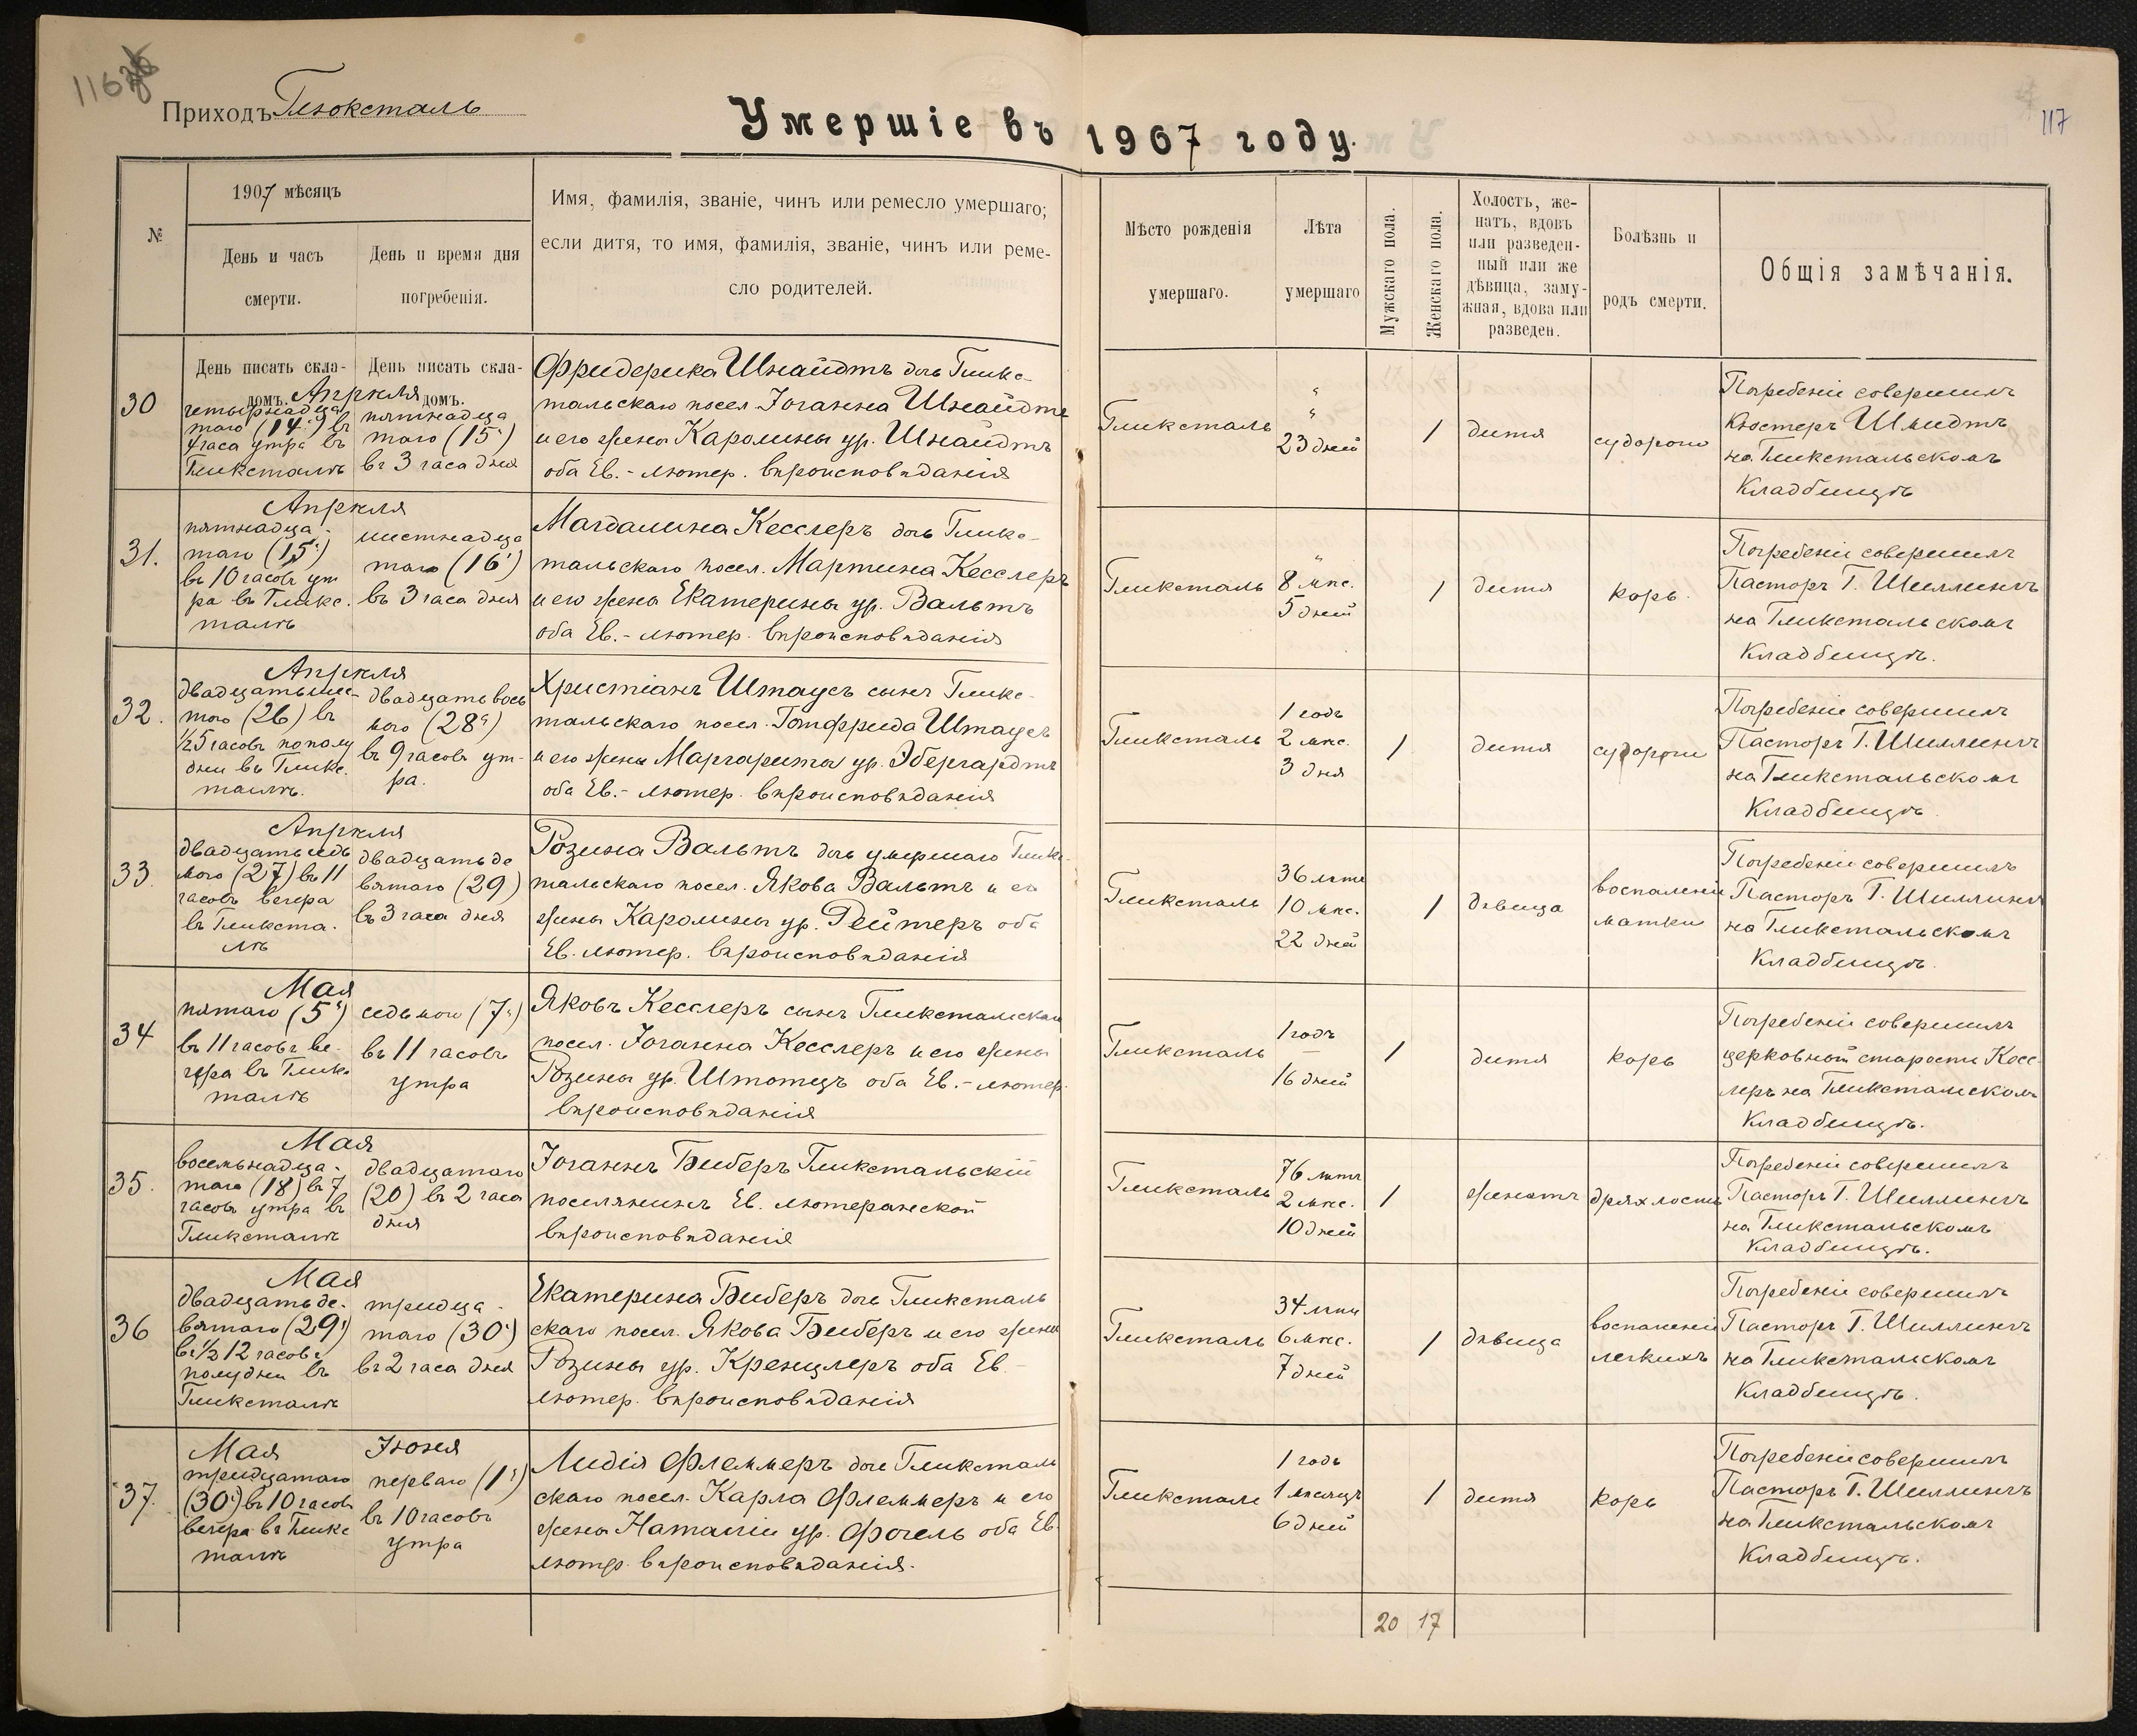 116
Приходъ Глюксталь
Умершіе въ 1907 году.
117
№
1907 мѣсяцъ
День и часъ
смерти.
День и время дня
погребенія.
Имя, фамилія, званіе, чинъ или ремесло умершаго;
если дитя, то имя, фамилія, званіе, чинъ или реме-
сло родителей.
Мѣсто рожденія
умершаго.
Лѣта
умершаго
Мужскаго пола.
Женскаго пола.
Холостъ, же-
натъ, вдовъ
или разведен-
ный или же
дѣвица, заму-
жная, вдова или
разведен.
Болѣзнь и
родъ смерти.
Общія замѣчанія.
День писать скла-
домъ.
День писать скла-
домъ.
30
Апрѣля
четырнадца
таго (14.) въ
4 часа утра въ
Гликсталѣ
пятнадца
таго (15.)
въ 3 часа дня
Фридерика Шнайдтъ дочь Гликс-
тальскаго посел. Іоганна Шнайдтъ
и его жены Каролины ур. Шнайдтъ
оба Ев.-лютер. вѣроисповѣданія
Гликсталь
"
"
23 дней
1
дитя
судороги
Погребеніе совершилъ
Кюстеръ Шмидтъ
на Гликстальскомъ
Кладбищѣ
31.
Апрѣля
пятнадца-
таго (15.)
въ 10 часовъ ут
ра въ Гликс.
талѣ
шестнадца
таго (16.)
въ 3 часа дня
Магдалина Кесслеръ дочь Гликс-
тальскаго посел. Мартина Кесслеръ
и его жены Екатерины ур. Вальтъ
оба Ев.-лютер. вѣроисповѣданія
Гликсталь
"
8 мѣс.
5 дней
1
дитя
корь.
Погребеніе совершилъ
Пасторъ Г. Шиллингъ
на Гликстальскомъ
Кладбищѣ.
32.
Апрѣля
двадцатьшес-
таго (26) въ
½5 часовъ пополу
дни въ Гликс.
талѣ.
двадцатьвось
мого (28.)
въ 9 часовъ ут-
ра.
Христіанъ Штаусъ сынъ Гликс-
тальскаго посел. Готфрида Штаусъ
и его жены Маргариты ур. Эбергардтъ
оба Ев.-лютер. вѣроисповѣданія
Гликсталь
1 годъ
2 мѣс.
3 дня
1
дитя
судороги
Погребеніе совершилъ
Пасторъ Г. Шиллингъ
на Гликстальскомъ
Кладбищѣ.
33.
Апрѣля
двадцатьседь
мого (27) въ 11
часовъ вечера
въ Гликста-
лѣ
двадцатьде
вятаго (29)
въ 3 часа дня
Розина Вальтъ дочь умершаго Гликс-
тальскаго посел. Якова Вальтъ и его
жены Каролины ур. Рейтеръ оба
Ев. лютер. вѣроисповѣданія
Гликсталь
36 лѣтъ
10 мѣс.
22 дней
1
дѣвица
воспаленіе
матки
Погребеніе совершилъ
Пасторъ Г. Шиллингъ
на Гликстальскомъ
Кладбищѣ.
34
Мая
пятаго (5.)
въ 11 часовъ ве-
чера въ Гликс
талѣ
седьмого (7.)
въ 11 часовъ
утра
Яковъ Кесслеръ сынъ Гликстальскаго
посел. Іоганна Кесслеръ и его жены
Розины ур. Штотцъ оба Ев.-лютер.
вѣроисповѣданія
Гликсталь
1 годъ
—
16 дней
1
дитя
корь
Погребеніе совершилъ
церковный староста Кесс-
леръ на Гликстальскомъ
Кладбищѣ.
35.
Мая
восемьнадца-
таго (18) въ 7
часовъ утра въ
Гликсталѣ
двадцатаго
(20) въ 2 часа
дня
Іоганнъ Биберъ Гликстальскій
поселянинъ Ев. лютеранской
вѣроисповѣданія
Гликсталь
76 лѣтъ
2 мѣс.
10 дней
1
женатъ
дряхлость
Погребеніе совершилъ
Пасторъ Г. Шиллингъ
на Гликстальскомъ
Кладбищѣ.
36
Мая
двадцатьде-
вятаго (29.)
въ ½12 часовъ
полудни въ
Гликсталѣ
тридца-
таго (30.)
въ 2 часа дня
Екатерина Биберъ дочь Гликсталь
скаго посел. Якова Биберъ и его жены
Розины ур. Кренцлеръ оба Ев-
лютер. вѣроисповѣданія
Гликсталь
34 лѣтъ
6 мѣс.
7 дней
1
дѣвица
воспаленіе
легкихъ
Погребеніе совершилъ
Пасторъ Г. Шиллингъ
на Гликстальскомъ
Кладбищѣ.
37.
Мая
тридцатаго
(30.) въ 10 часовъ
вечера въ Гликс
талѣ
Іюня
перваго (1.)
въ 10 часовъ
утра
Лидія Флеммеръ дочь Гликсталь
скаго посел. Карла Флеммеръ и его
жены Наталіи ур. Фогель оба Ев.
лютер. вѣроисповѣданія.
Гликсталь
1 годъ
1 мѣсяцъ
6 дней
1
дитя
корь
Погребеніе совершилъ
Пасторъ Г. Шиллингъ
на Гликстальскомъ
Кладбищѣ.
20 17